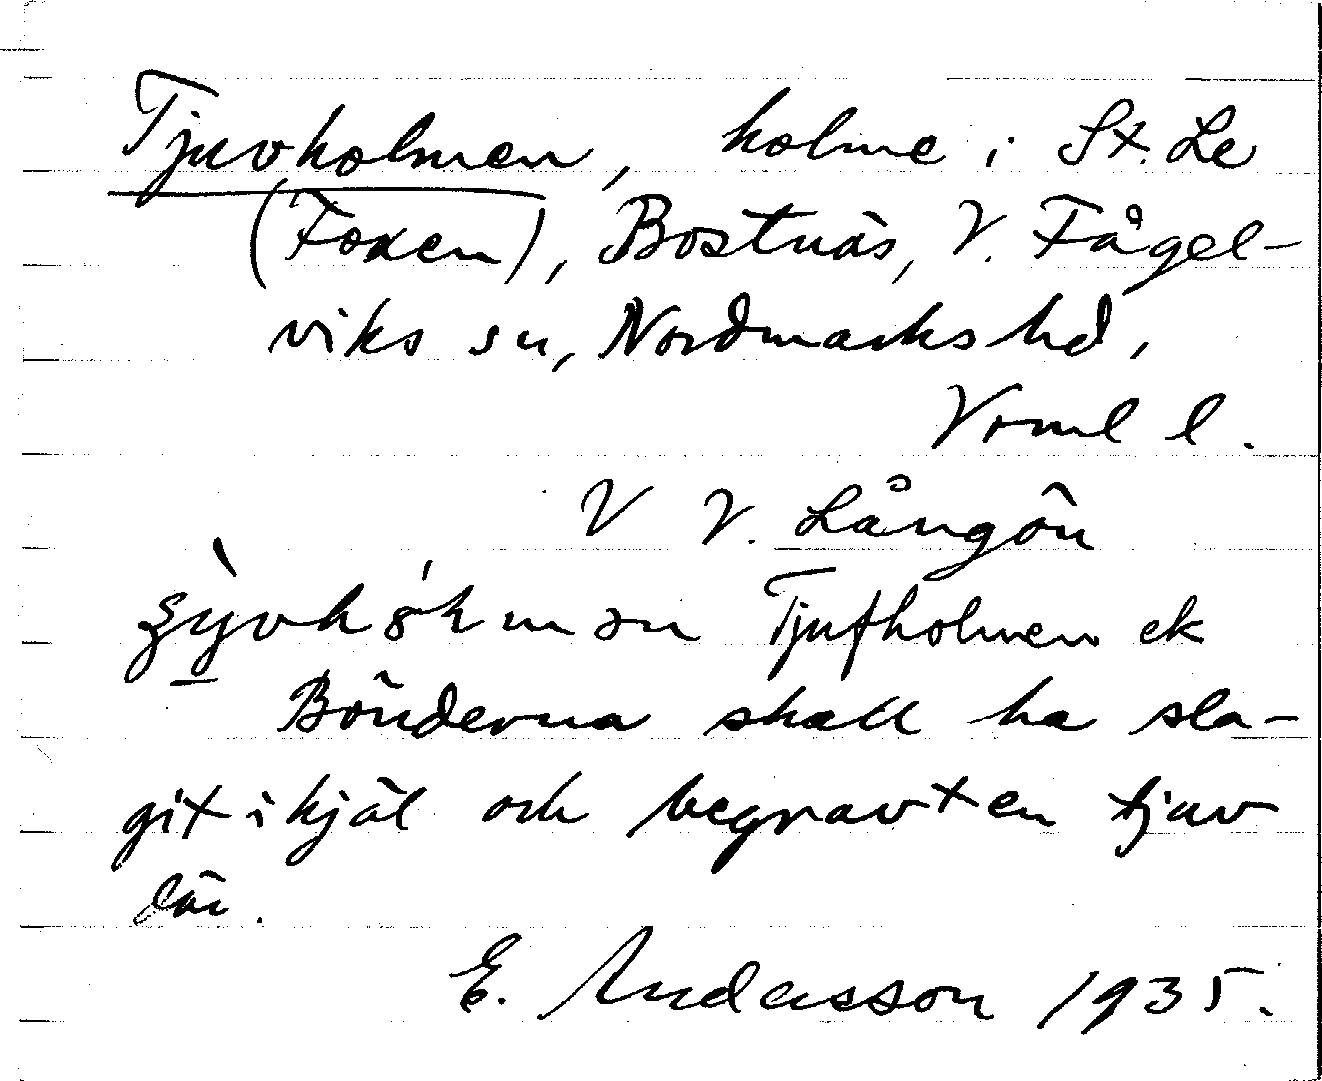 Tjuvholmen, holme i St. Le
(Foxen), Bostnäs, V. Fågel-
viks sn, Nordmarks hd,
Vrml l.
V V. Långön
Tjufholmen ek
Bönderna skall ha sla-
git ihjäl och begravt en tjuv
där.
E. Andersson 1935.